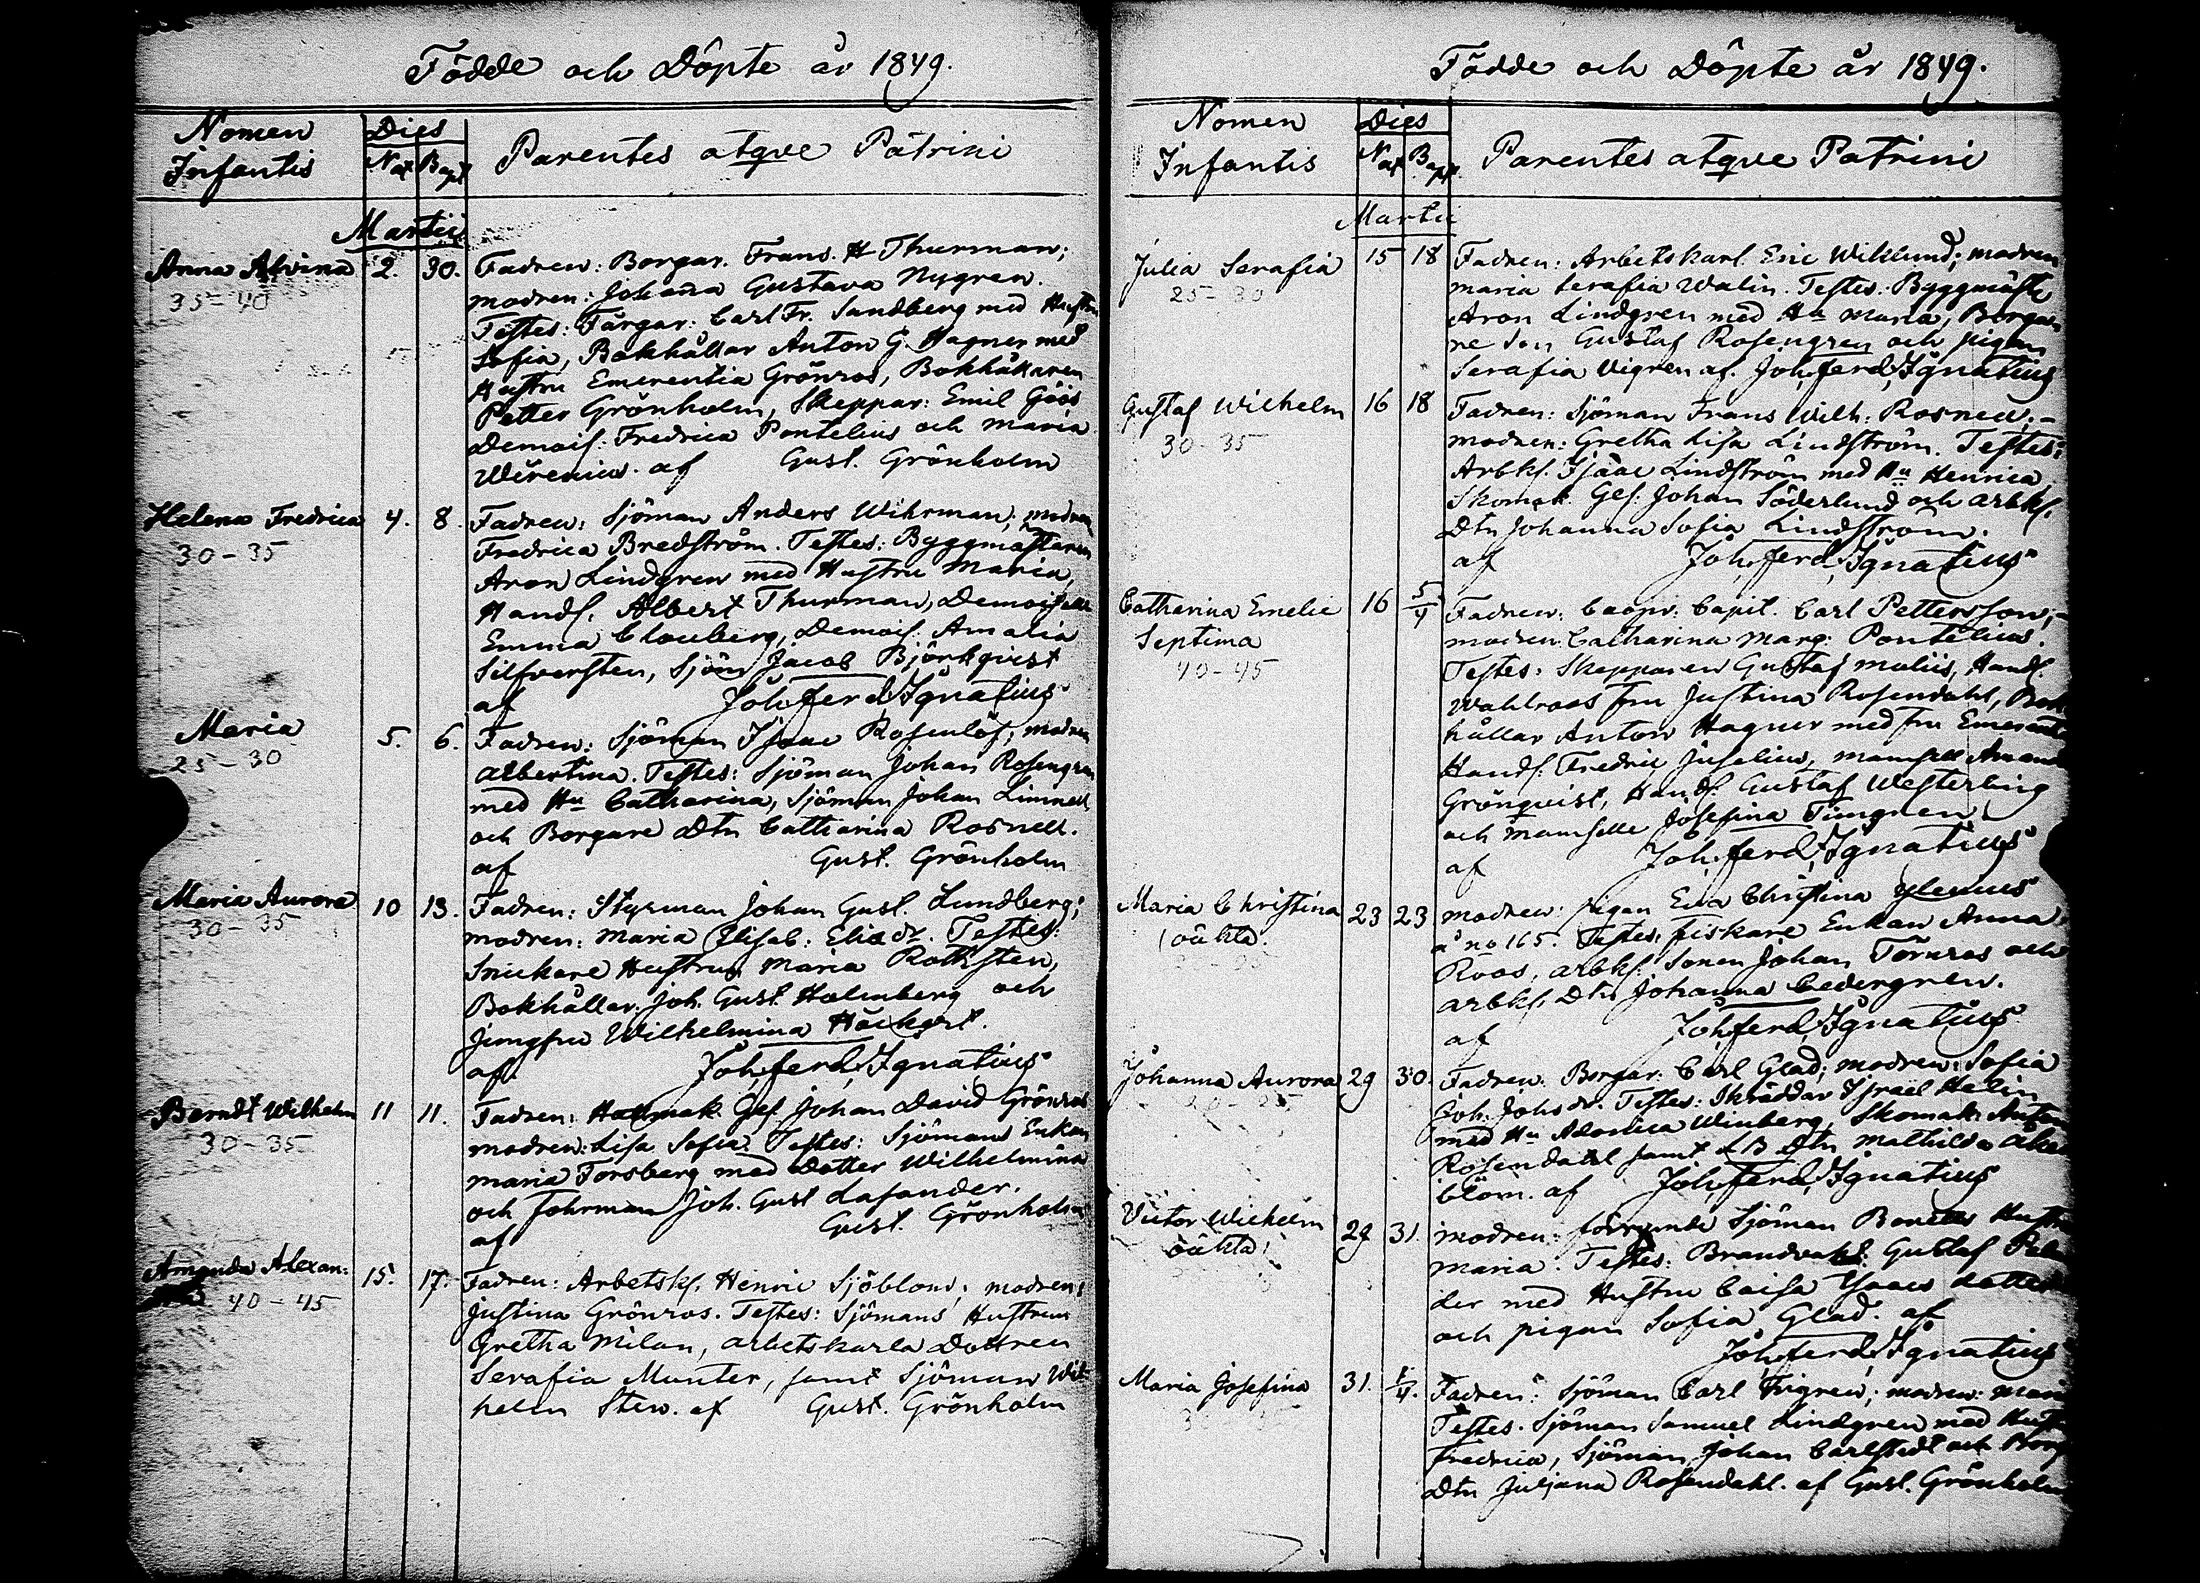 Födde och Döpte år 1849.
Nomen Infantis
Dies
Nat Bapt
Parentes atqve Patrini
Martii
Anna Alvina 2. 30. Fadren: Borgar. Frans. H Thurman;
35-40
modren: Johanna Gustava Nygren.
Testes: Färgar: Carl Fr. Sandberg med Hustru
Sofia, Bokhållar Anton G. Hagner med
Hustru Emerentia Grönros, Bokhållaren
Petter Grönholm, Skeppar: Emil Göös
Demois: Fredrica Pontelius och Maria
af Gust. Grönholm
Helena Fredrica 4. 8. Fadren: Sjöman Anders Wihrman; modren
30-35
Fredrica Bredström. Testes: Byggmästaren
Aron Lindgren med Hustru Maria,
Handl. Albert Thurman, Demoiselle
Emma Clouberg, Demois. Amalia
Silfversten, Sjöm Jacob Björkqvist
af Joh, ferd, Ignatius
Maria 5. 6. Fadren: Sjöman Isaac Rosenlöf; modren
25-30
Albertina. Testes: Sjöman Johan Rosengren
med Hu Catharina, Sjöman Johan Limnell
och Borgare Dtn Catharina Rosnell.
af Gust. Grönholm
Maria Aurora 10 13. Fadren: Styrman Johan Gust. Lundberg;
30-35
modren: Maria Elisab: Eliadr. Testes:
Snickare Hustrun Maria Rothsten,
Bokhållar. Joh. Gust. Holmberg och
Jungfru Wilhelmina Höckert.
af Joh, ferd, Ignatius
Berndt Wilhelm 11 11. Fadren: Hattmak. Ges. Johan David Grönros
30-35
modren: Lisa Sofia. Testes: Sjömans Enkan
Maria Forsberg med Dotter Wilhelmina
och Fohrman Joh. Gust Lasander.
af Gust. Grönholm
Amanda Alexan: 15. 17. Fadren: Arbetsk. Henric Sjöblom; modren:
40-45
Justina Grönros. Testes: Sjömans Hustrun
Gretha Milan, arbetskarla Dottren
Serafia Munter, samt Sjöman Wil
helm Sten. af Gust. Grönholm
Födde och Döpte år 1849.
Nomen Infantis
Dies
Nat Bapt
Parentes atqve Patrini
Martii
Julia Serafia 15 18 Fadren: Arbetskarl. Eric Wiklund; modren
Maria Serafia Walin. Testes: Byggmäst
Aron Lindgren med Hu Maria, Borga
re Son Gustaf Rosengren och pigan
Serafia Vigren af Joh, ferd, Ignatius
Gustaf Wilhelm 16 18 Fadren: Sjöman Frans Wilh: Rosnell;
30-35
modren: Gretha Lisa Lindström. Testes:
Arbks. Isaac Lindström med Hu Henrica,
Skomak. Ges. Johan Söderlund och arbks.
Dtn Johanna Sofia Lindström.
af Joh, ferd, Ignatius
Catharina Emelie 16 5/4 Fadren: Coopv. Capit. Carl Pettersson;
Septima
40-45
modren Catharina Marg: Pontelius.
Testes: Skepparen Gustaf Moliis, Handl.
Wahlroos fru Justina Rosendahl, Bok
hållar Anton Hagner med fru Emerent
Handl. Fredric Juselius, mamsell Amand
Grönqvist, Handl. Gustaf Westerling
och mamselle Josefina Timgren
af Joh, ferd, Ignatius
Maria Christina 23 23 modren: pigan Eva Christina
oäkta.
å no 165. Testes, fiskare Enkan Anna
Roos, arbks. Sonen Johan Törnros och
arbks. Dtn Johanna Cedergren.
af Joh, ferd, Ignatius
Johanna Aurora 29 30. Fadren: Borgar. Carl Glad; modren: Sofia
Joh. Johsdr. Testes: Skräddar Israel Helin
med Hu Adolrica Winberg, Skomak: Anton
Rosendahl samt LB Dtn Mathilda Aker
blom. af Joh, ferd, Ignatius
Victor Wilhelm 29 31. modren: försvunne Sjöman Hustru
oäkta;
Maria. Testes: Brandvakt. Gustaf
der med Hustru Caisa Isaacs dotter
och pigan Sofia Glad. af
Joh, ferd, Ignatius
Maria Josefina 31. 1/4. Fadren: Sjöman Carl Frigren; modren: Mari
Testes. Sjöman Samuel Lindgren med Hust
Fredrica, Sjöman Johan Carlstedt och Borg
Dtn Juljana Rosendahl. af Gust. Grönholm